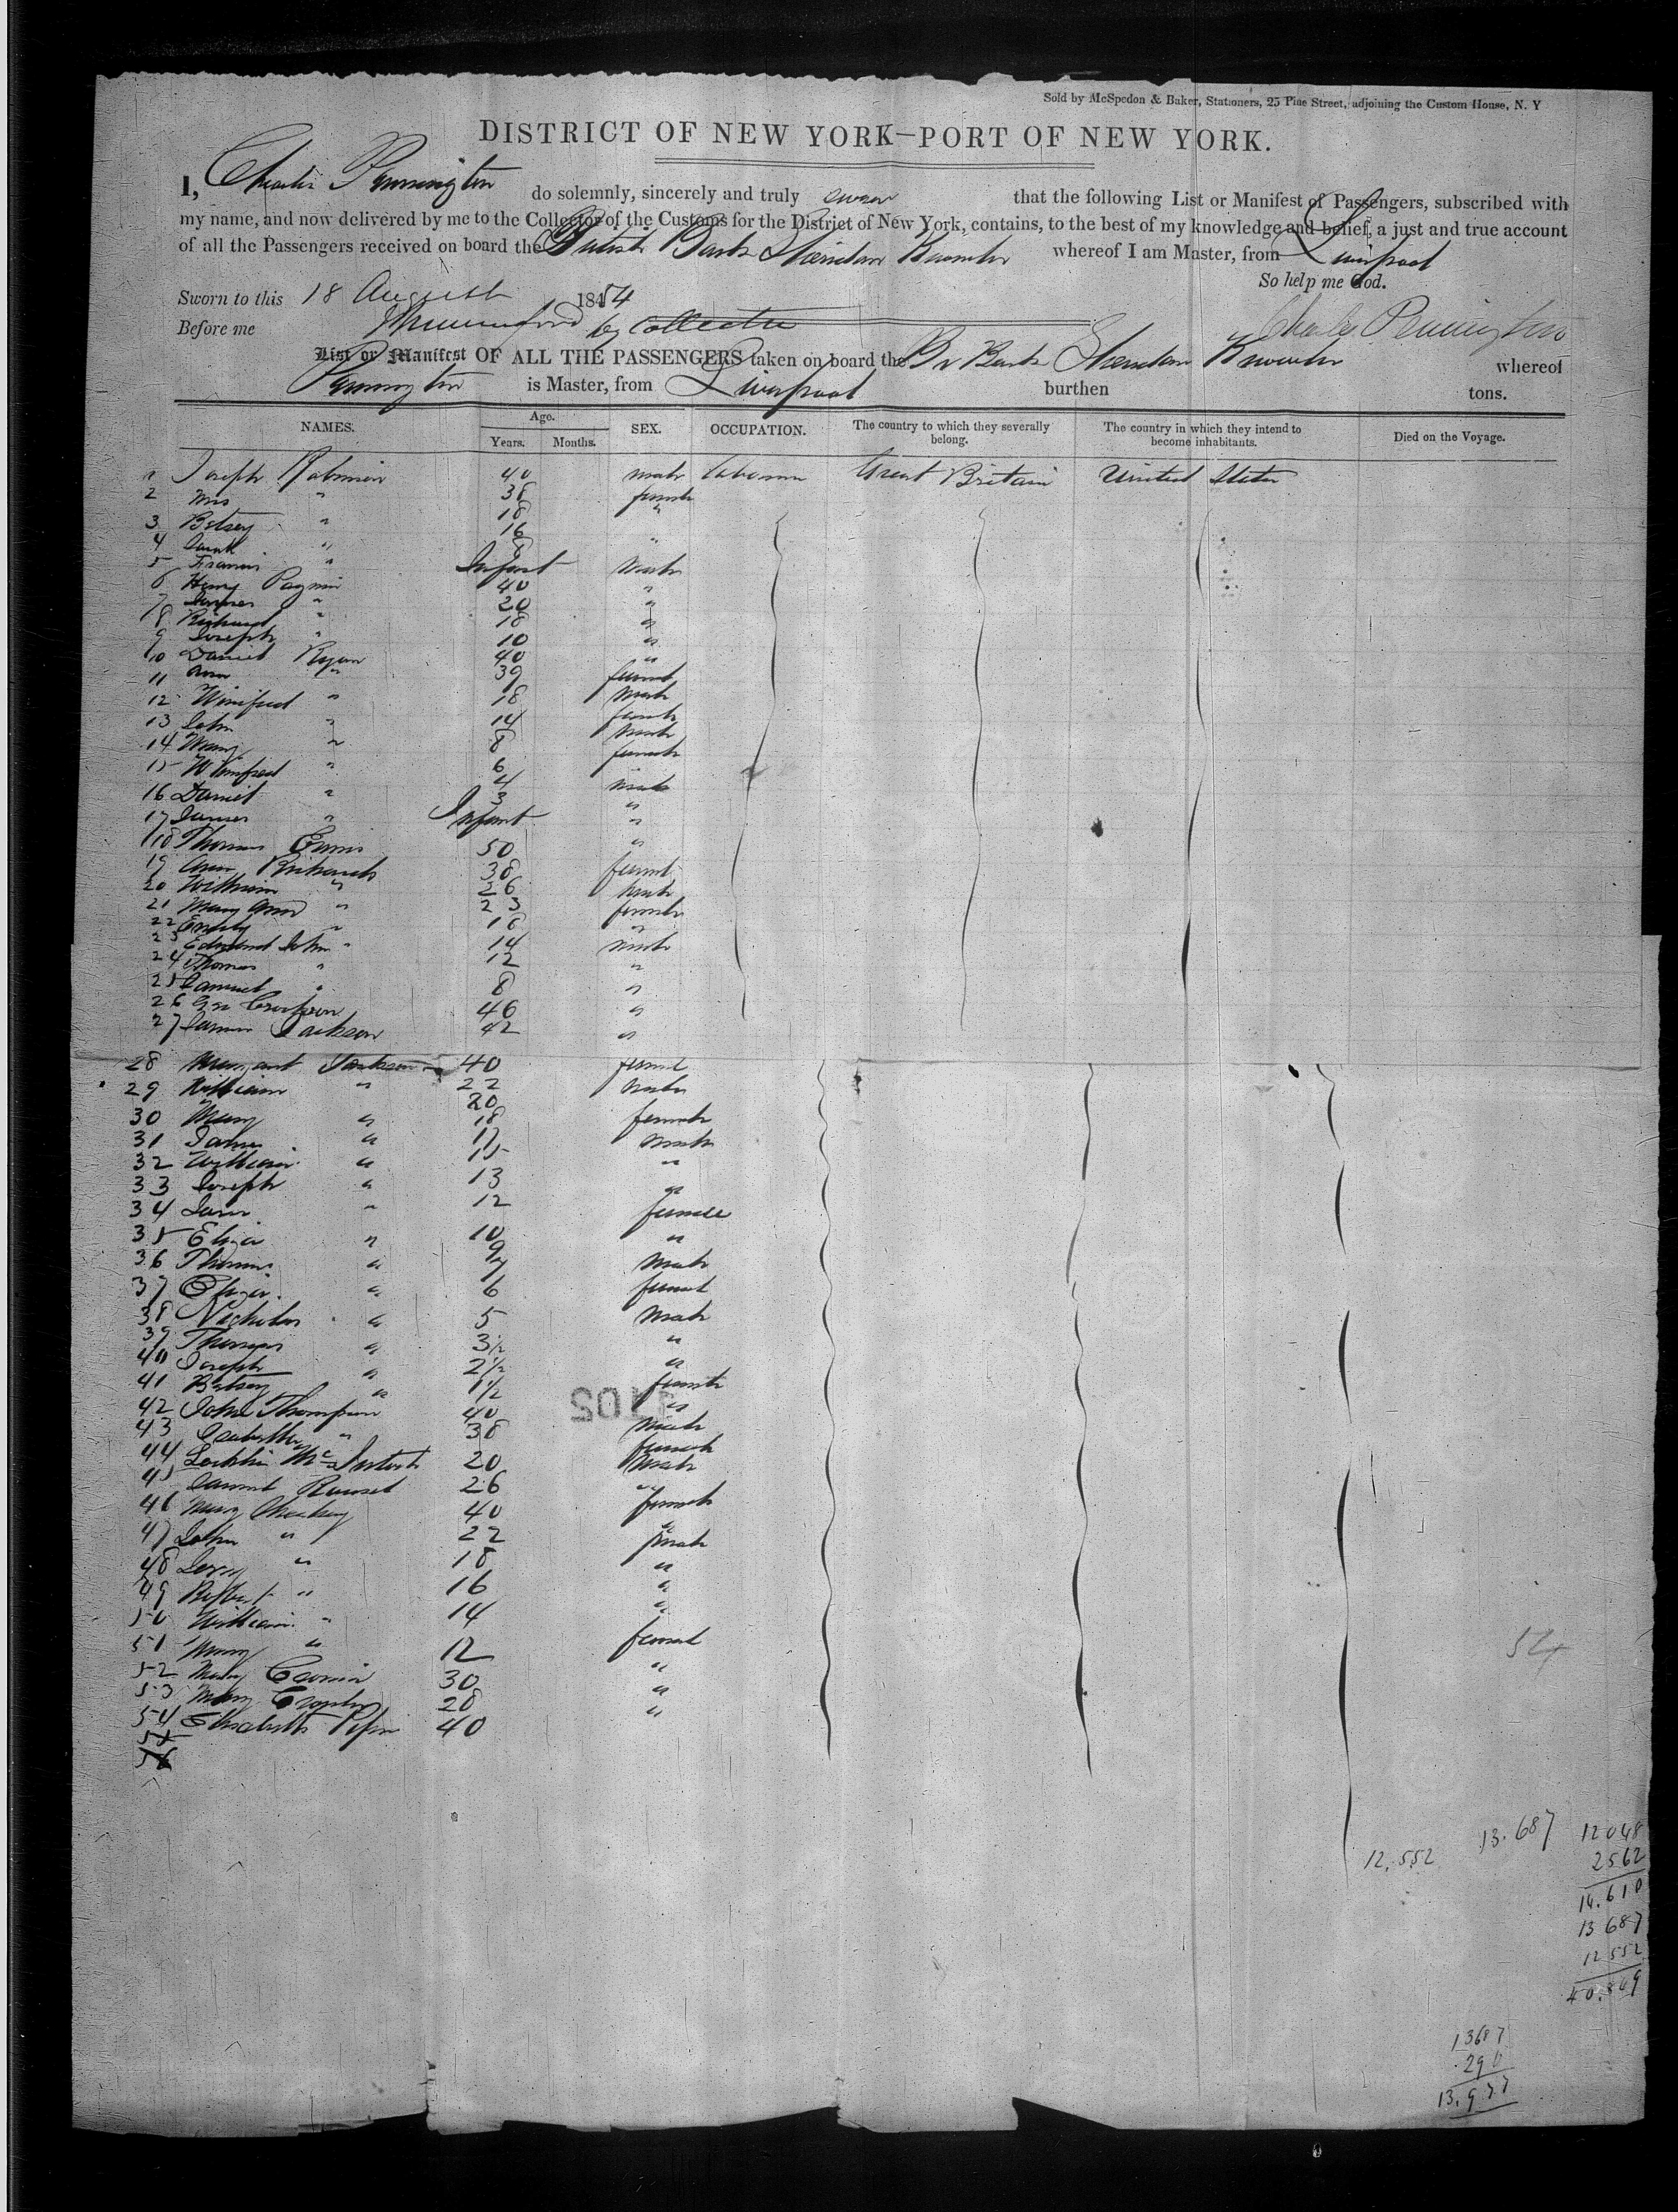 Sold by McSpedon & Baker, Stationers, 25 Pine Street, adjoining the Custom House, N. Y
DISTRICT OF NEW YORK—PORT OF NEW YORK.
I, Charles Pennington do solemnly, sincerely and truly swear that the following List or Manifest of Passengers, subscribed with
my name, and now delivered by me to the Collector of the Customs for the District of New York, contains, to the best of my knowledge and belief, a just and true account
of all the Passengers received on board the British Bark Sheridan Knowles whereof I am Master, from Liverpool
So help me God.
Sworn to this 18 August 1854
Before me by Collector Charles Pennington
List or Manifest OF ALL THE PASSENGERS taken on board the Br Bark Sheridan Knowles whereof
Pennington is Master, from Liverpool burthen tons.
NAMES. Age. Years. Months. SEX. OCCUPATION. The country to which they severally belong. The country in which they intend to become inhabitants. Died on the Voyage.
1 Joseph Robinson 40 male Great Britain United States
2 Mrs " 38 female
3 Betsey " 18 "
4 Sarah " 16 "
5 Francis " Infant male
6 Henry 40 "
7 James " 20 "
8 Richard " 18 "
9 Joseph " 10 "
10 Daniel Ryan 40 "
11 Ann " 39 female
12 Winifred " 18 male
13 John " 14 female
14 Mary " 8 male
15 Winifred " 6 female
16 Daniel " 4 male
17 James " Infant "
18 Thomas 50 "
19 Ann Richards 38 female
20 William " 26 male
21 Mary Ann " 23 female
22 Emily " 18 "
23 Edmund John " 14 male
24 Thomas " 12 "
25 Samuel " 8 "
26 Geo 46 "
27 James Jackson 42 "
28 Margaret Jackson 40 female
29 William " 22 male
30 Mary " 20 female
31 James " 18 male
32 William " 15 "
33 Joseph " 13 "
34 Jane " 12 female
35 Eliza " 10 "
36 Thomas " 9 male
37 Eliza " 6 female
38 Nicholas " 5 male
39 Thomas " 3½ "
40 Joseph " 2½ "
41 Betsey " 1½ female
42 John Thompson 40 male
43 Isabella " 38 female
44 20 male
45 26 "
46 Mary 40 female
47 John " 22 male
48 " 18 "
49 Robert " 16 "
50 William " 14 "
51 Mary " 12 female
52 Mary Cronin 30 "
53 Mary 28 "
54 Elizabeth 40 "
54
12,552
13.687
12048
2562
14.610
13687
12552
40.849
13687
290
13.977